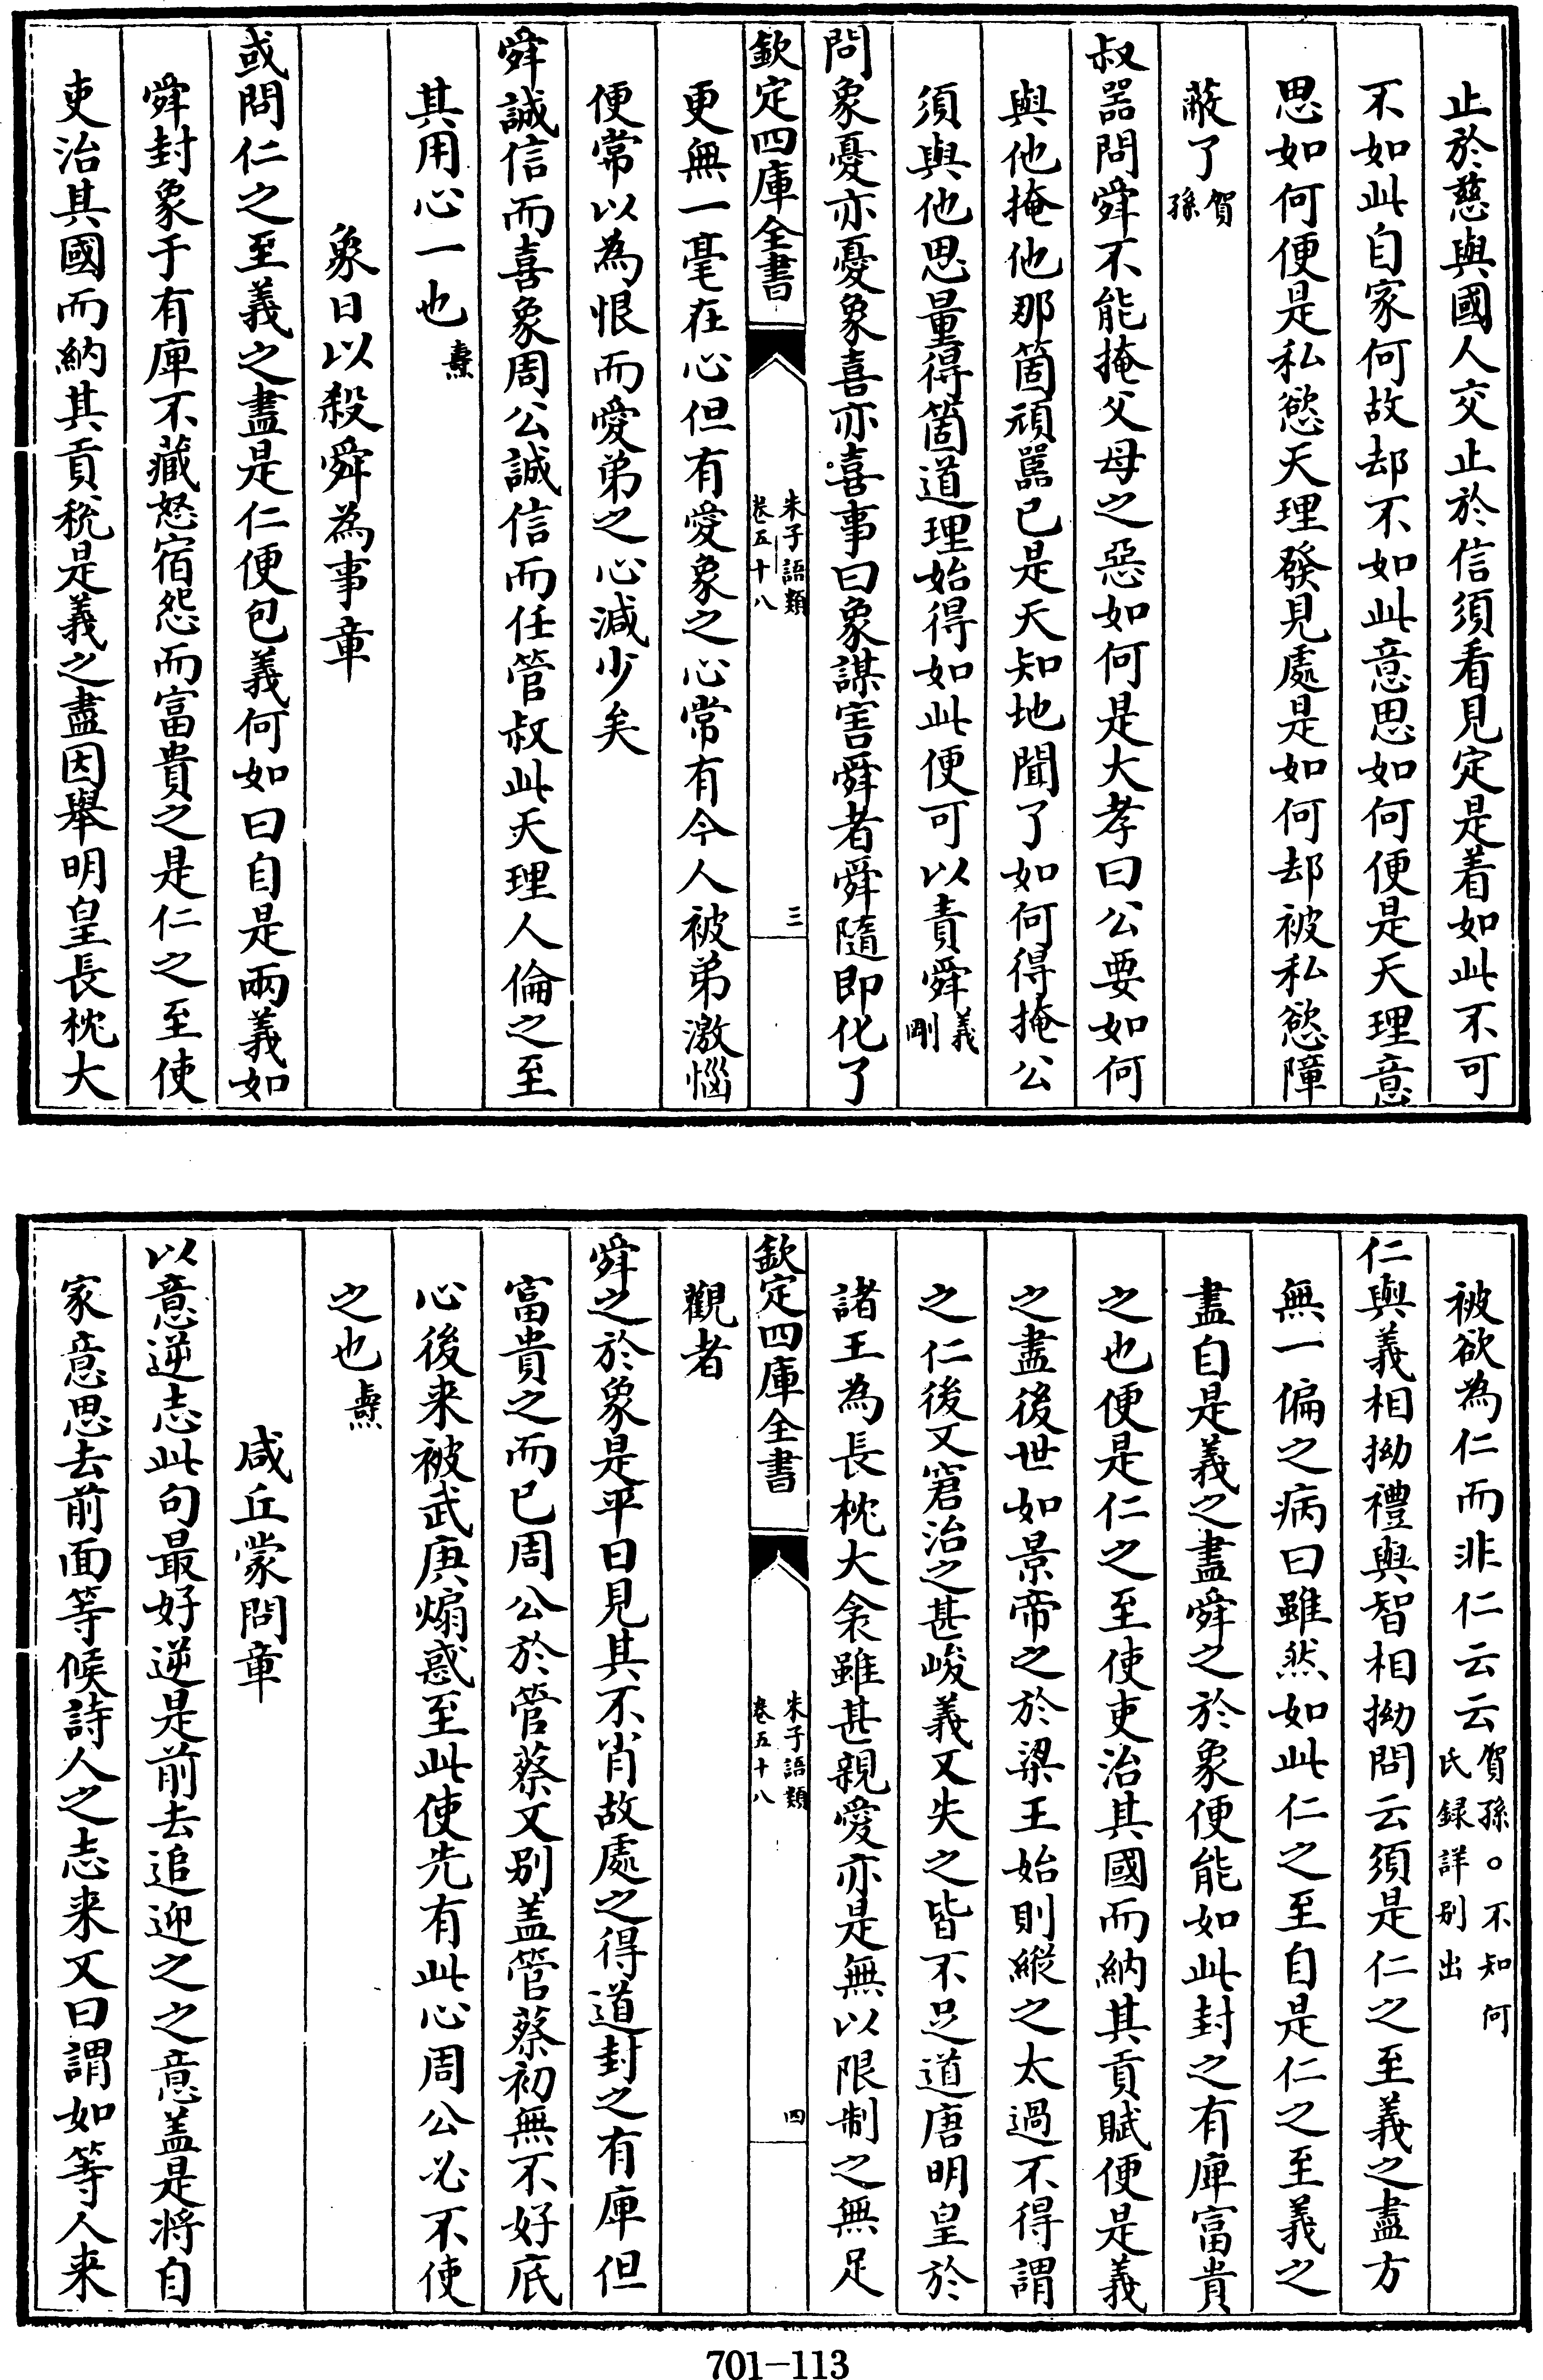 止於慈與國人交止於信須看見定是着如此不可
不如此自家何故却不如此意思如何便是天理意
思如何便是私慾天理發見處是如何却被私慾障
蔽了賀孫
叔器問舜不能掩父母之惡如何是大孝曰公要如何
與他掩他那箇頑嚚已是天知地聞了如何得掩公
須與他思量得箇道理始得如此便可以責舜義剛
問象憂亦憂象喜亦喜事曰象謀害舜者舜隨即化了
欽定四庫全書
朱子語類
卷五十八
三
更無一毫在心但有愛象之心常有今人被弟激惱
便常以為恨而愛弟之心減少矣
舜誠信而喜象周公誠信而任管叔此天理人倫之至
其用心一也燾
象日以殺舜為事章
或問仁之至義之盡是仁便包義何如曰自是兩義如
舜封象于有庳不藏怒宿怨而富貴之是仁之至使
吏治其國而納其貢稅是義之盡因舉明皇長枕大
被欲為仁而非仁云云賀孫。不知何
氏録詳别出
仁與義相拗禮與智相拗問云須是仁之至義之盡方
無一偏之病曰雖然如此仁之至自是仁之至義之
盡自是義之盡舜之於象便能如此封之有庳富貴
之也便是仁之至使吏治其國而納其貢賦便是義
之盡後世如景帝之於梁王始則縱之太過不得謂
之仁後又窘治之甚峻義又失之皆不足道唐明皇於
諸王為長枕大衾雖甚親愛亦是無以限制之無足
欽定四庫全書
朱子語類
卷五十八
四
觀者
舜之於象是平日見其不肖故處之得道封之有庳但
富貴之而已周公於管蔡又别盖管蔡初無不好底
心後来被武庚煽惑至此使先有此心周公必不使
之也燾
咸丘蒙問章
以意逆志此句最好逆是前去追迎之之意盖是將自
家意思去前面等候詩人之志来又曰謂如等人来
701-113